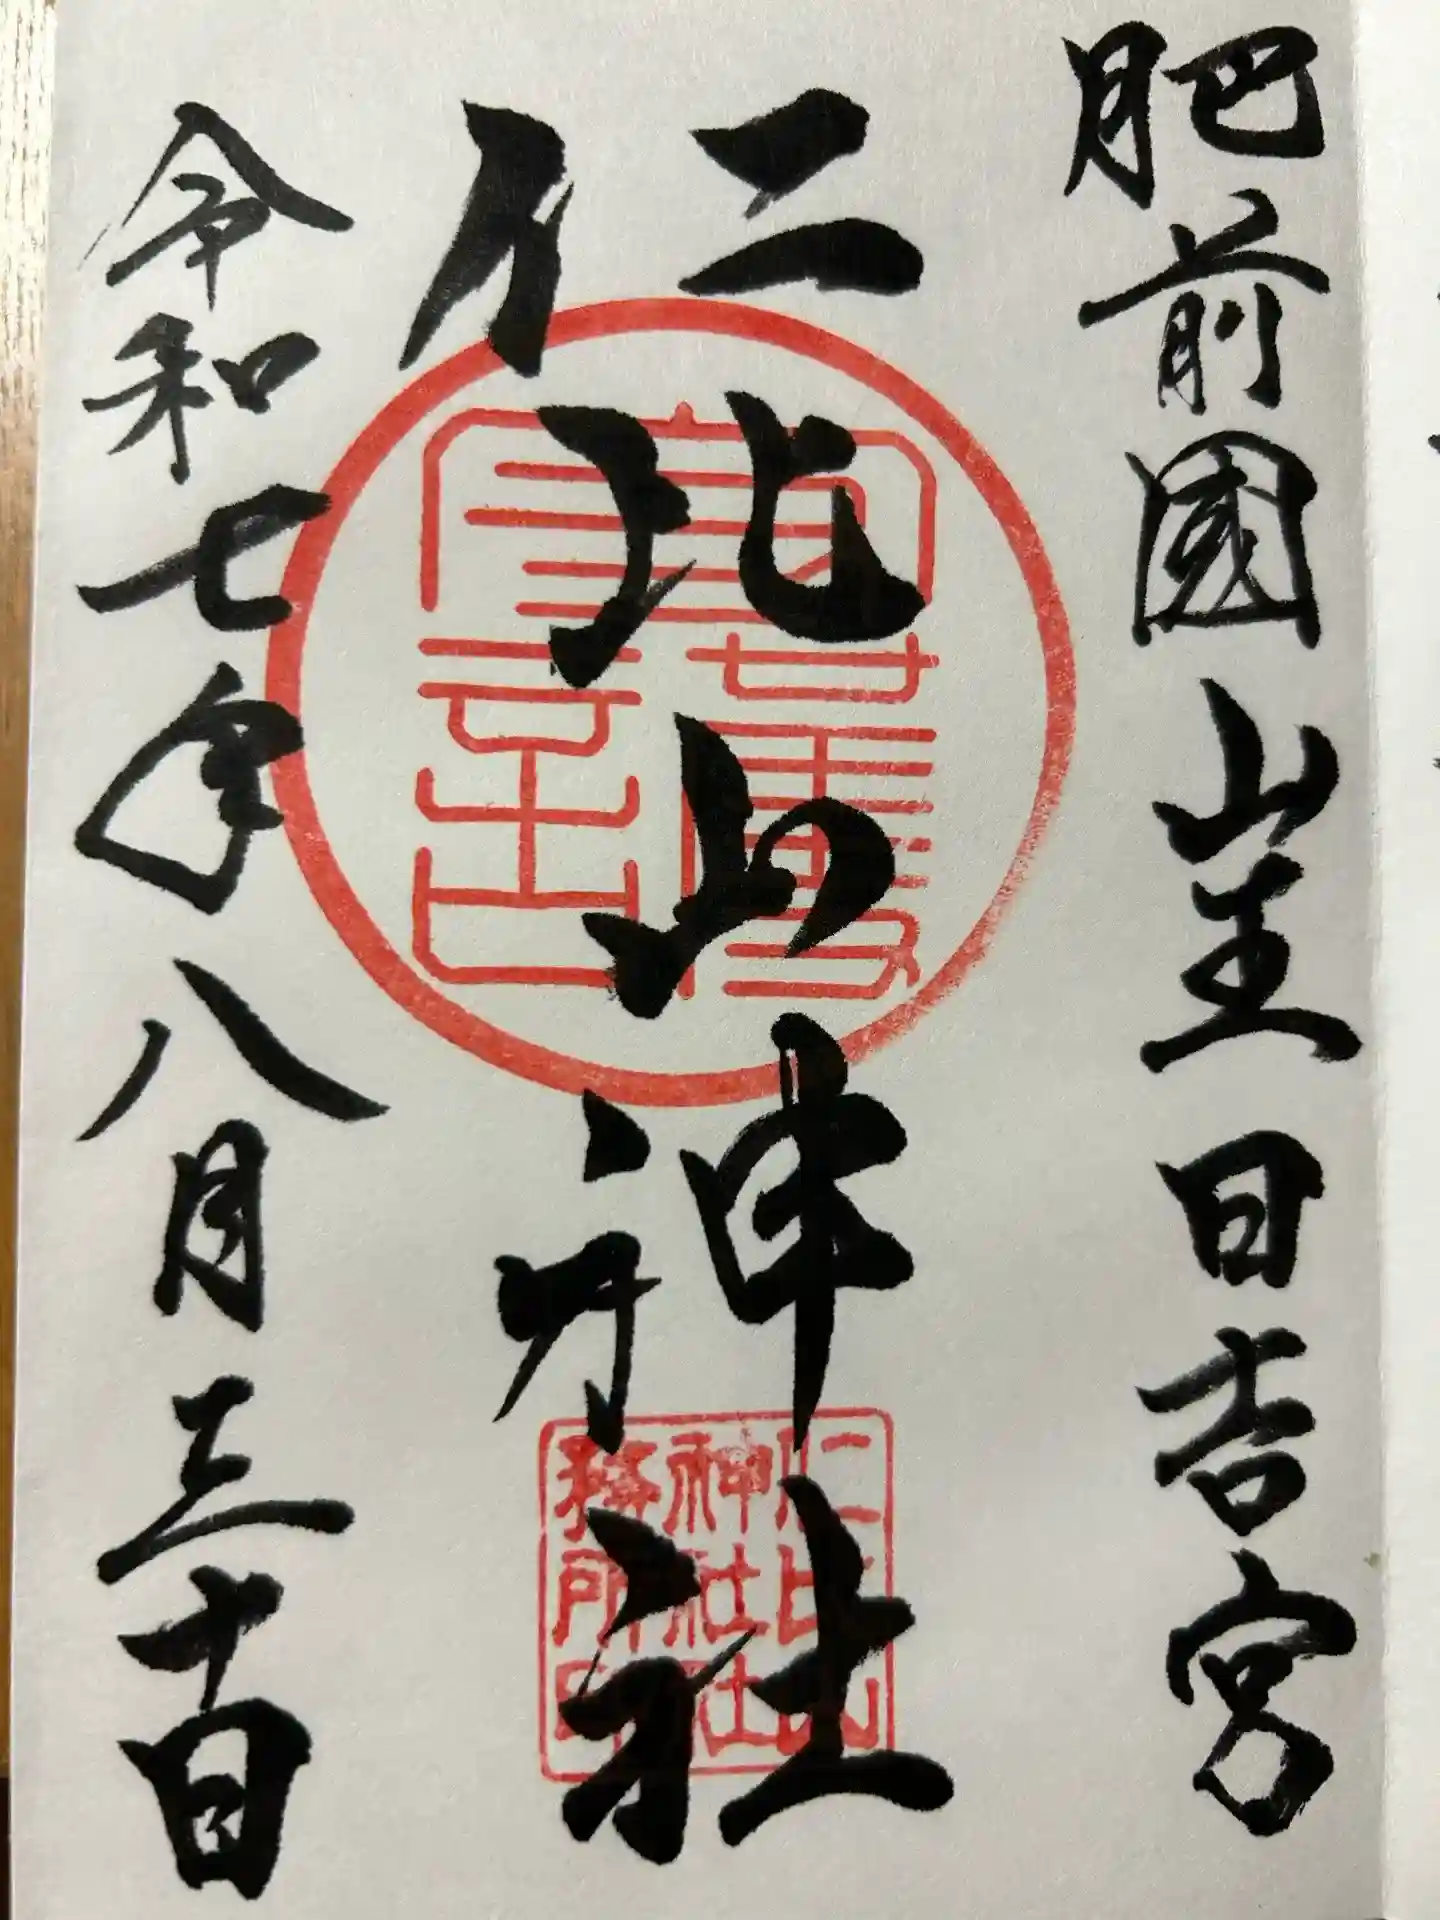 肥前國山王日吉宮
仁比山神社
仁比山
神社社
務所印
令和七年八月三十日